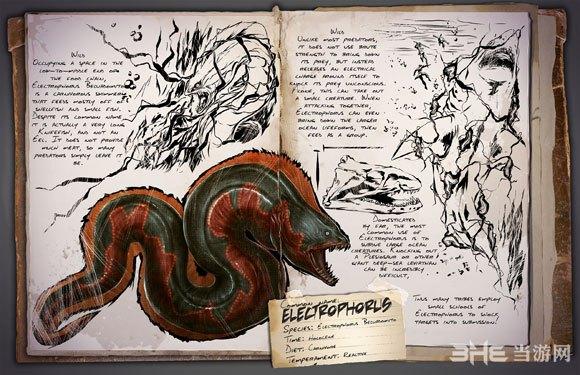 Wild
Occupying a space in the
low-to-middle end of
the food chain,
Electrophorus Beluadomito
is a carnivorous swimmer
that feeds mostly off of
shellfish and small fish.
Despite its common name,
it is actually a very long
Knifefish, and not an
Eel. It does not provide
much meat, so many
predators simply leave it
be.
Wild
Unlike most predators,
it does not use brute
strength to bring down
its prey, but insteas
releases an electrical
charge around itself to
knock its prey unconscious.
Alone, this can take out
a small creature. When
attacking together,
Electrophorus can even
bring down the larger
ocean lifeforms, then
feed as a group.
Domesticated
By far, the most
common use of
Electrophorus is to
subdue large ocean
creatures. Knocking out
a Plesiosaur or other
giant deep-sea leviathan
can be incredibly
difficult.
Thus many tribes employ
small schools of
Electrophorus to shock
targets into submission.
Common Name
Electrophorus
Species: Electrophorus Beluadomito
Time: Holocene
Diet: Carnivore
Temperament: Reactive
3HE 当游网